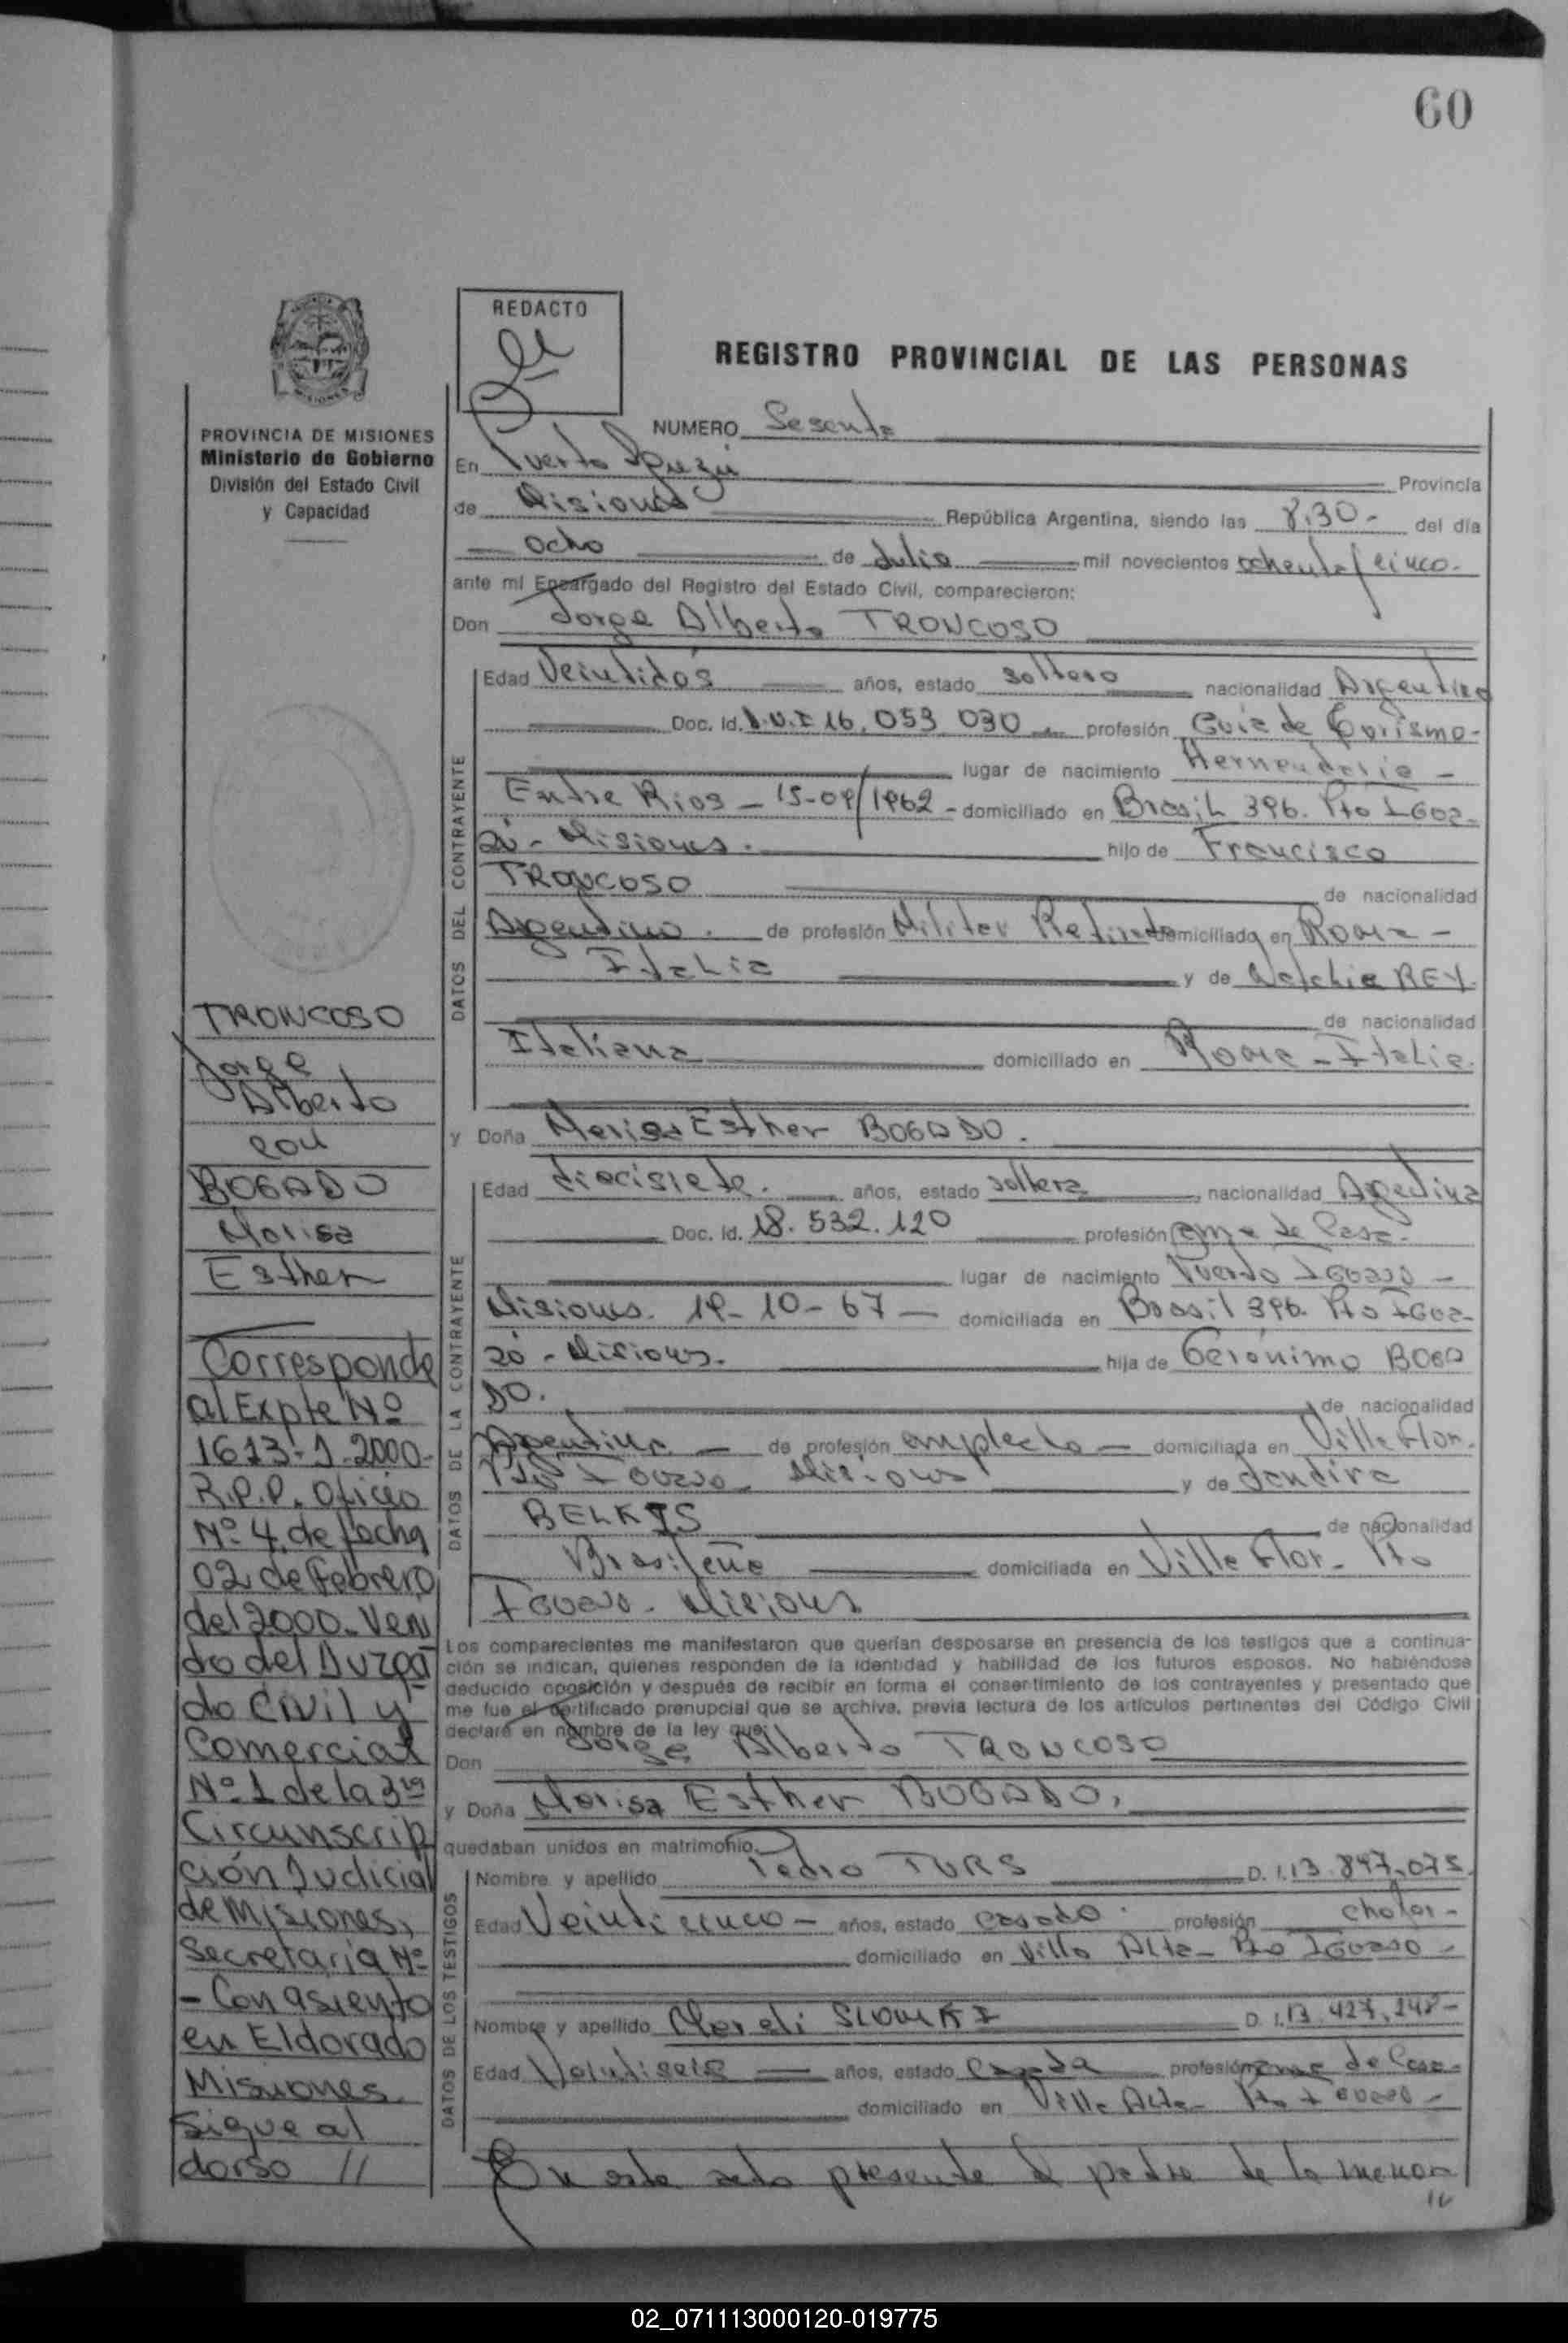 60
REDACTO
REGISTRO PROVINCIAL DE LAS PERSONAS
PROVINCIA DE MISIONES
Ministerio de Gobierno
División del Estado Civil
y Capacidad
NUMERO Sesenta
En Puerto Iguazú Provincia
de Misiones República Argentina, siendo las 8.30- del día
ocho de Julio mil novecientos ochenta y cinco.
ante mí Encargado del Registro del Estado Civil, comparecieron:
Don Jorge Alberto TRONCOSO
DATOS DEL CONTRAYENTE
Edad Veintidós años, estado soltero nacionalidad Argentino
Doc. Id. D.N.I 16.053.030 profesión Guía de Turismo-
lugar de nacimiento Hernandaria -
Entre Rios - 15-09/1962 - domiciliado en Brasil 396. Pto IGUA-
zú - Misiones. hijo de Francisco
TRONCOSO de nacionalidad
Argentino. de profesión Militar Retirado domiciliado en Roma -
Italia y de REY.
de nacionalidad
Italiana domiciliado en Roma - Italia.
y Doña Marisa Esther BOGADO.
DATOS DE LA CONTRAYENTE
Edad diecisiete. años, estado soltera, nacionalidad Argentina
Doc. Id. 18.532.120 profesión ama de Casa.
lugar de nacimiento Puerto IGUAZU -
Misiones. 19-10-67 - domiciliada en Brasil 396. Pto IGUA-
zú - Misiones. hija de Gerónimo BOGA
DO. de nacionalidad
Argentina - de profesión empleado - domiciliada en Villa Flor.
Pto IGUAZU. Misiones y de Jandira
BELKIS de nacionalidad
Brasileña domiciliada en Villa Flor - Pto
IGUAZU - Misiones
Los comparecientes me manifestaron que querían desposarse en presencia de los testigos que a continua-
ción se indican, quienes responden de la identidad y habilidad de los futuros esposos. No habiéndose
deducido oposición y después de recibir en forma el consentimiento de los contrayentes y presentado que
me fue el certificado prenupcial que se archiva, previa lectura de los artículos pertinentes del Código Civil
declaré en nombre de la ley que:
Don Jorge Alberto TRONCOSO
y Doña Marisa Esther BOGADO,
quedaban unidos en matrimonio.
DATOS DE LOS TESTIGOS
Nombre y apellido Pedro TURS D. I. 13.847.075.
Edad Veinticinco - años, estado casado. profesión chofer -
domiciliado en Villa Alta - Pto IGUAZU -
Nombre y apellido SLOWKI D. I. 13.427.248-
Edad Veintiseis años, estado casada profesión ama de Casa-
domiciliado en Villa Alta - Pto IGUAZU -
En este acto presente el padre de la menor
//
TRONCOSO
Jorge
Alberto
con
BOGADO
Marisa
Esther
Corresponde
al Expte Nº
1613-J-2000-
R.P.P. Oficio
Nº 4 de fecha
02 de Febrero
del 2000. Veni
do del Juzga
do Civil y
Comercial
Nº 1 de la 3ra
Circunscrip
ción Judicial
de Misiones,
Secretaría Nº
- Con asiento
en Eldorado
Misiones.
Sigue al
dorso //
02_071113000120-019775